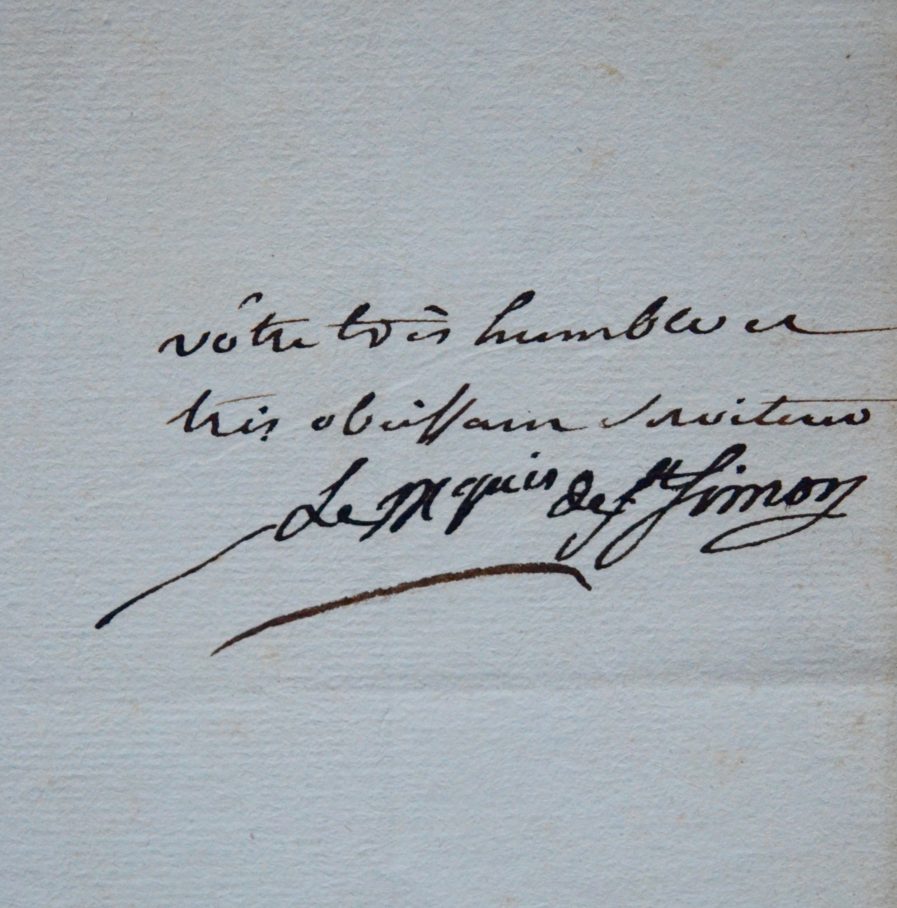 vôtre très humble et
très obeissant serviteur
Le Mquis de St Simon